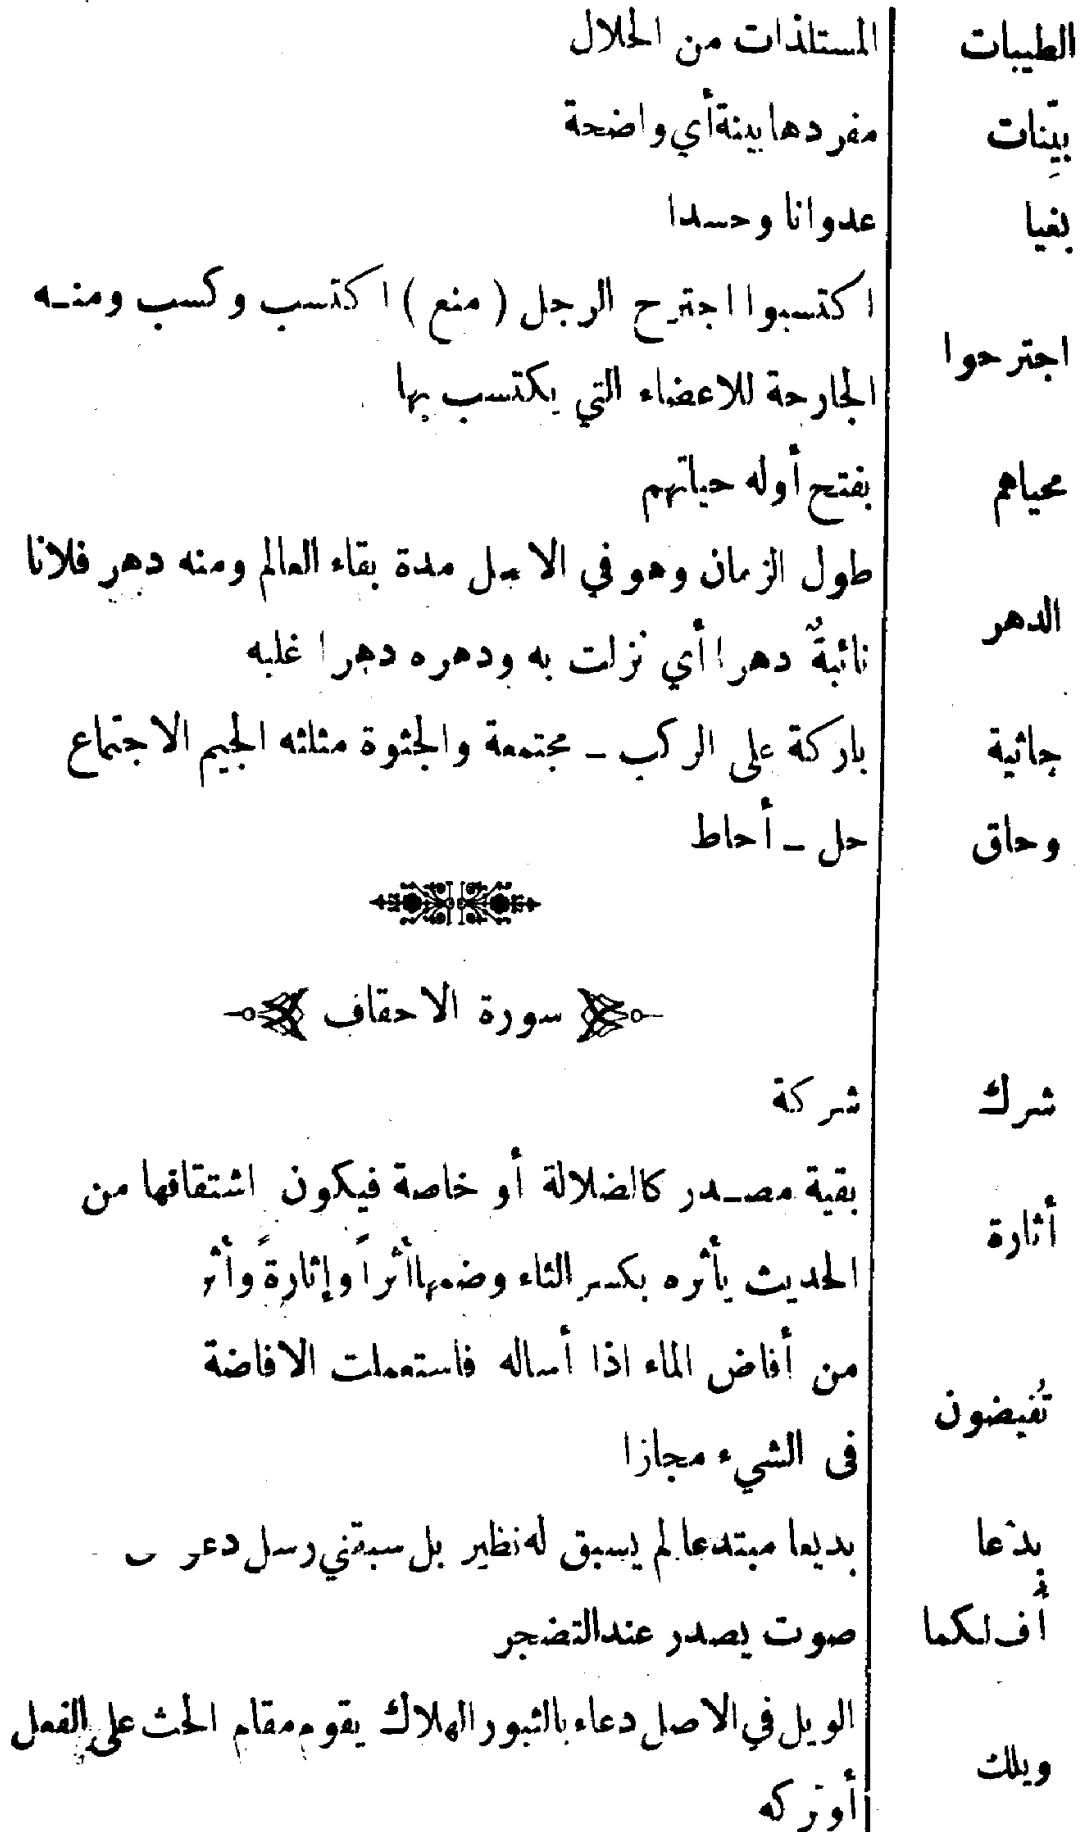 الطيبات المستلذات من الحلال
بيّنات مفردها بينة أي واضحة
بغيا عدوانا وحسدا
اجترحوا اكتسبوا اجترح الرجل (منع) اكتسب وكسب ومنـه
الجارحة للاعضاء التي يكتسب بها
محياهم بفتح أوله حياتهم
الدهر طول الزمان وهو في الاصل مدة بقاء العالم ومنه دهر فلانا
نائبةٌ دهرا أي نزلت به ودهره دهرا غلبه
جاثية باركة على الركب ـ مجتمعة والجثوة مثلثه الجيم الاجتماع
وحاق حل ـ أحاط
سورة الاحقاف
شرك شركة
أثارة بقية مصـدر كالضلالة أو خاصة فيكون اشتقاقها من
الحديث يأثره بكسر الثاء وضمها أثراً وإثارةً وأثر
تُفيضون من أفاض الماء اذا أساله فاستعملت الافاضة
فى الشيء مجازا
بِدْعا بديعا مبتدعا لم يسبق له نظير بل سبقني رسل
أُف لكما صوت يصدر عند التضجر
ويلك الويل في الاصل دعاء بالثبور الهلاك يقوم مقام الحث على الفعل
أو تركه